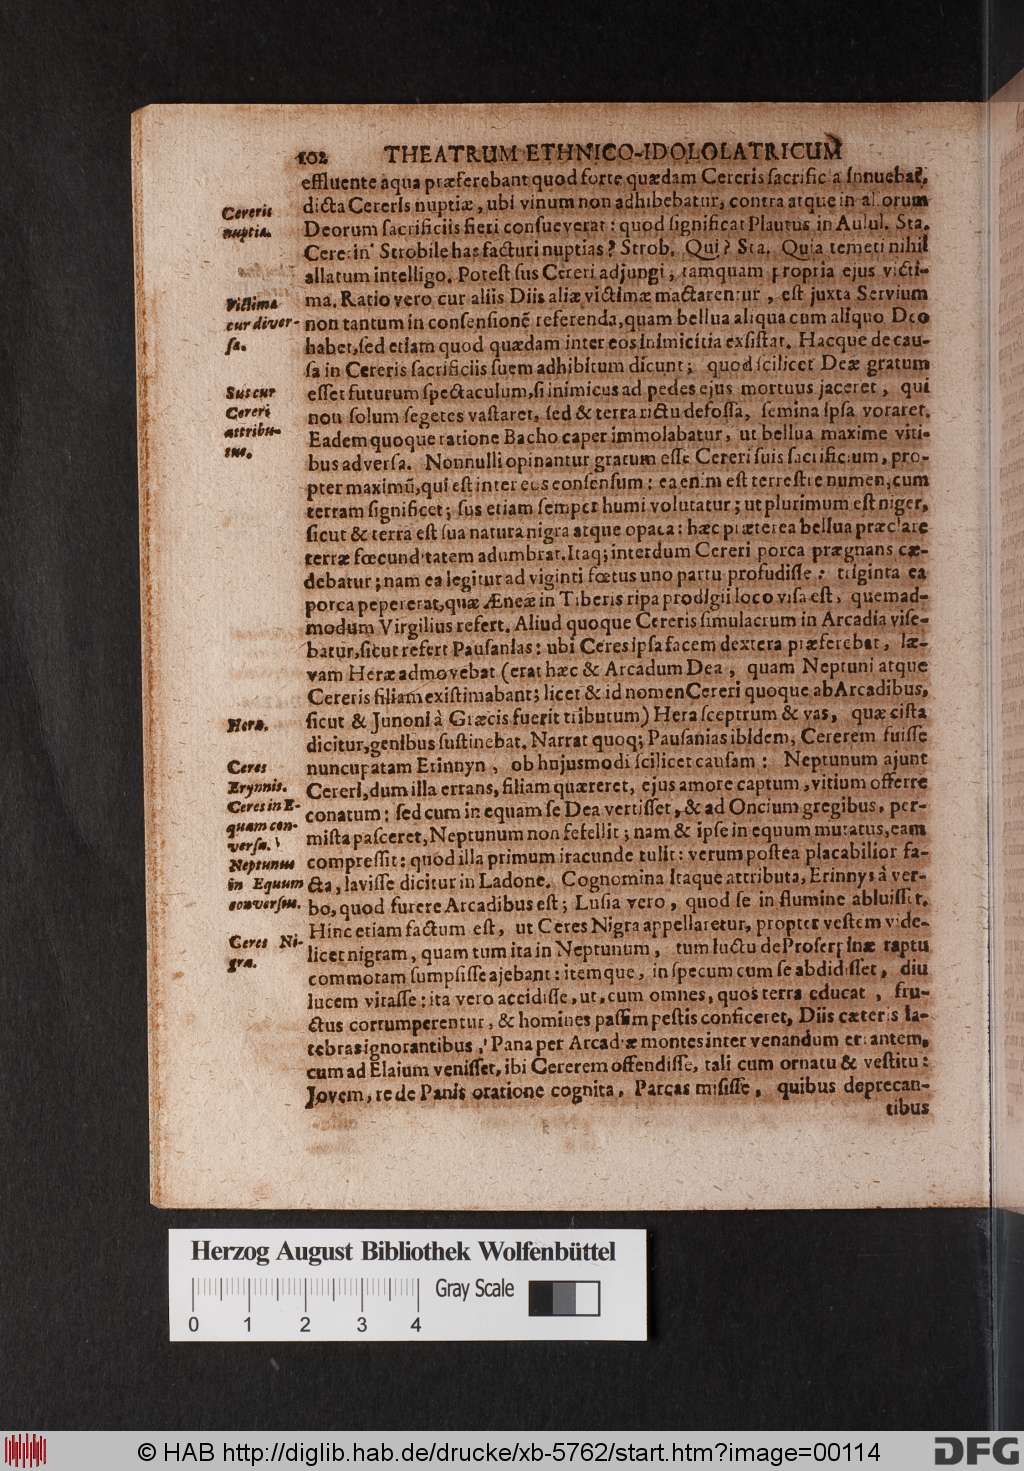 102 THEATRUM ETHNICO-IDOLOLATRICUM
effluente aqua præferebant quod forte quædam Cereris ſacrificia innuebat,
dicta Cereris nuptiæ, ubi vinum non adhibebatur, contra atque in aliorum
Deorum ſacrificiis fieri conſueverat: quod ſignificat Plautus in Aulul. Sta.
Cererin' Strobile has facturi nuptias? Strob. Qui? Sta. Quia temeti nihil
allatum intelligo. Poteſt ſus Cereri adjungi, tamquam propria ejus victi-
ma. Ratio vero cur aliis Diis aliæ victimæ mactarentur, eſt juxta Servium
non tantum in conſenſionē referenda, quam bellua aliqua cum aliquo Deo
habet, ſed etiam quod quædam inter eos inimicitia exſiſtat. Hacque de cau-
ſa in Cereris ſacrificiis ſuem adhibitum dicunt; quod ſcilicet Deæ gratum
eſſet futurum ſpectaculum, ſi inimicus ad pedes ejus mortuus jaceret, qui
non ſolum ſegetes vaſtaret, ſed & terra rictu defoſſa, ſemina ipſa voraret.
Eadem quoque ratione Bacho caper immolabatur, ut bellua maxime viti-
bus adverſa. Nonnulli opinantur gratum eſſe Cereri ſuis ſacrificium, pro-
pter maximū, qui eſt inter eos conſenſum: ea enim eſt terreſtre numen, cum
terram ſignificet; ſus etiam ſemper humi volutatur; ut plurimum eſt niger,
ſicut & terra eſt ſua natura nigra atque opaca: hæc præterea bellua præclare
terræ fœcunditatem adumbrat. Itaq; interdum Cereri porca prægnans cæ-
debatur; nam ea legitur ad viginti fœtus uno partu profudiſſe: triginta ea
porca pepererat, quæ Æneæ in Tiberis ripa prodigii loco viſa eſt, quemad-
modum Virgilius refert. Aliud quoque Cereris ſimulacrum in Arcadia viſe-
batur, ſicut refert Pauſanias: ubi Ceres ipſa facem dextera præferebat, læ-
vam Heræ admovebat (erat hæc & Arcadum Dea, quam Neptuni atque
Cereris filiam exiſtimabant; licet & id nomen Cereri quoque ab Arcadibus,
ſicut & Junoni à Græcis fuerit tributum) Hera ſceptrum & vas, quæ ciſta
dicitur, genibus ſuſtinebat. Narrat quoq; Pauſanias ibidem, Cererem fuiſſe
nuncupatam Erinnyn, ob hujusmodi ſcilicet cauſam: Neptunum ajunt
Cereri, dum illa errans, filiam quæreret, ejus amore captum, vitium offerre
conatum: ſed cum in equam ſe Dea vertiſſet, & ad Oncium gregibus, per-
miſta paſceret, Neptunum non fefellit; nam & ipſe in equum mutatus, eam
compreſſit: quod illa primum iracunde tulit: verum poſtea placabilior fa-
cta, laviſſe dicitur in Ladone. Cognomina itaque attributa, Erinnys à ver-
bo, quod furere Arcadibus eſt; Luſia vero, quod ſe in flumine abluiſſet.
Hinc etiam factum eſt, ut Ceres Nigra appellaretur, propter veſtem vide-
licet nigram, quam tum ita in Neptunum, tum luctu de Proſerpinæ raptu
commotam ſumpſiſſe ajebant: itemque, in ſpecum cum ſe abdidiſſet, diu
lucem vitaſſe: ita vero accidiſſe, ut, cum omnes, quos terra educat, fru-
ctus corrumperentur, & homines paſſim peſtis conficeret, Diis cæteris la-
tebras ignorantibus, Pana per Arcadiæ montes inter venandum errantem,
cum ad Elaium veniſſet, ibi Cererem offendiſſe, tali cum ornatu & veſtitu:
Jovem, re de Panis oratione cognita, Parcas miſiſſe, quibus deprecan-
tibus
Cereris
nuptiæ.
Victima
cur diver-
ſa.
Sus cur
Cereri
attribu-
tus.
Hera.
Ceres
Erynnis.
Ceres in E-
quam con-
verſa.
Neptunus
in Equum
converſus.
Ceres Ni-
gra.
Herzog August Bibliothek Wolfenbüttel
Gray Scale
0 1 2 3 4
© HAB http://diglib.hab.de/drucke/xb-5762/start.htm?image=00114
DFG